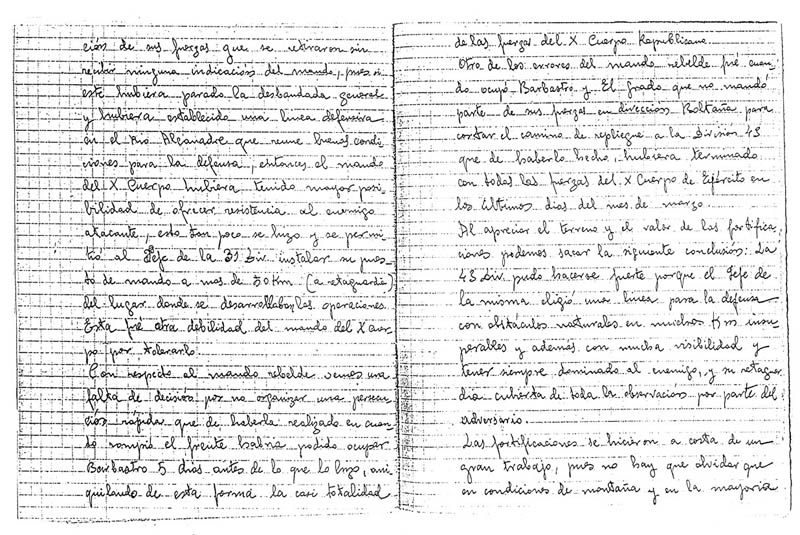 ción de sus fuerzas que se retiraron sin
recibir ninguna indicación del mando, pues si
este hubiera parado la desbandada general
y hubiera establecido una linea defensiva
en el Rio Alcanadre que reune buenas condi
ciones para la defensa, entonces el mando
del X Cuerpo hubiera tenido mayor posi
bilidad de ofrecer resistencia al enemigo
atacante, esto tan poco se hizo y se permi
tió al Jefe de la 31 Div. instalar su pues
to de mando a mas de 50 Km (a retaguardia)
del lugar donde se desarrollaban las operaciones
Esta fué otra debilidad del mando del X Cuer
po por tolerarlo.
Con respecto al mando rebelde vemos una
falta de decisión por no organizar una persecu
ción rápida que de haberla realizado en cuan
to rompió el frente habria podido ocupar
Barbastro 5 dias antes de lo que lo hizo, ani
quilando de esta forma la casi totalidad
de las fuerzas del X Cuerpo Republicano
Otro de los errores del mando rebelde fué cuan
do ocupó Barbastro y El Grado que no mandó
parte de sus fuerzas en dirección Boltaña para
cortar el camino de repliegue a la Division 43
que de haberlo hecho, hubiera terminado
con todas las fuerzas del X Cuerpo de Ejército en
los últimos dias del mes de marzo.
Al apreciar el terreno y el valor de las fortifica
ciones podemos sacar la siguiente conclusión: La
43 Div. pudo hacerse fuerte porque el Jefe de
la misma eligió una linea para la defensa
con obstáculos naturales en muchos Km insu
perables y además con mucha visibilidad y
tener siempre dominado al enemigo, y su retaguar
dia cubierta de toda la observación por parte del
adversario.
Las fortificaciones se hicieron a costa de un
gran trabajo, pues no hay que olvidar que
en condiciones de montaña y en la mayoria